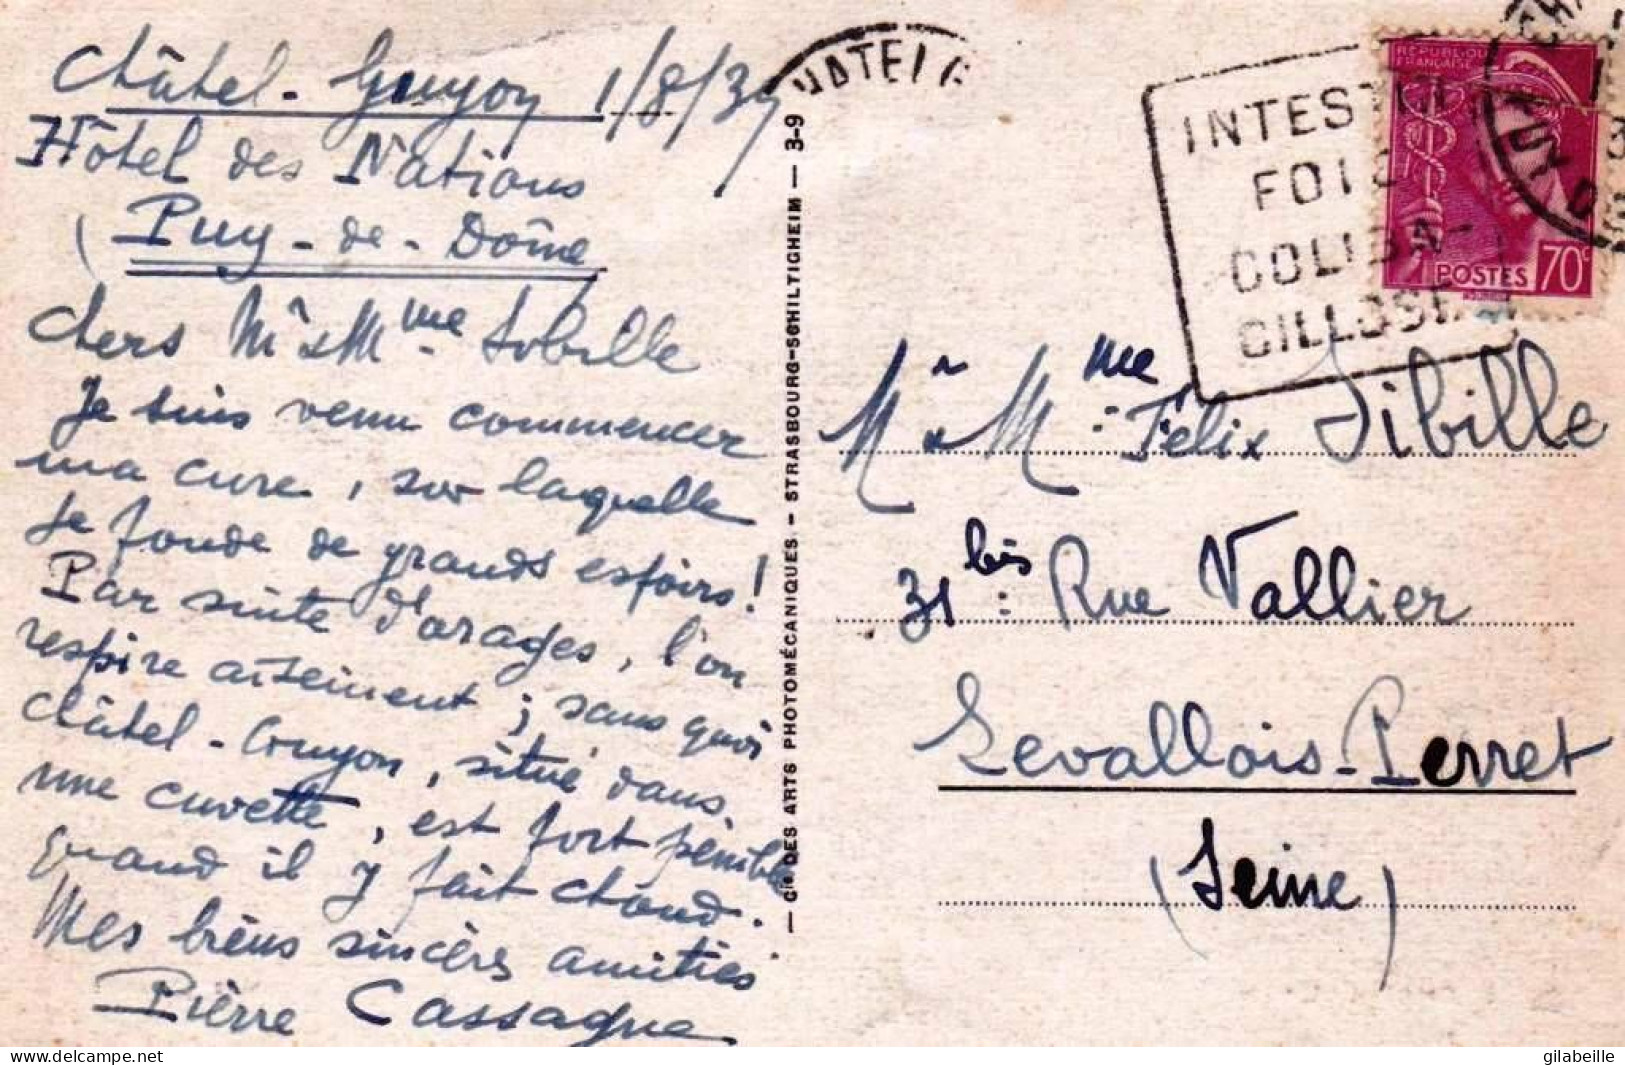 Châtel-Guyon 1/8/39
Hôtel des Nations
(Puy-de-Dôme
Chers Mr & Mme Sibille
Je suis venu commencer
ma cure, sur laquelle
je fonde de grands espoirs!
Par suite d'orages, l'on
respire aisément; sans quoi
Châtel-Guyon, situé dans
une cuvette, est fort pénible
quand il y fait chaud.
Mes biens sincères amitiés
Pierre Cassagne
— Cie DES ARTS PHOTOMÉCANIQUES - STRASBOURG-SCHILTIGHEIM — 3-9
HATELG
INTESTIN
FOIE
COLIBA-
CILLOSE
REPUBLIQUE
FRANÇAISE
POSTES 70c
PUY DE
Mr & Mme Félix Sibille
31 bis Rue Vallier
Levallois-Perret
(Seine)
gilabeille